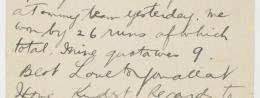 a Tommy team yesterday. We
won by 26 runs of which
total. Mine quota was 9.
Best Love to you all at
Home Kindest Regard to